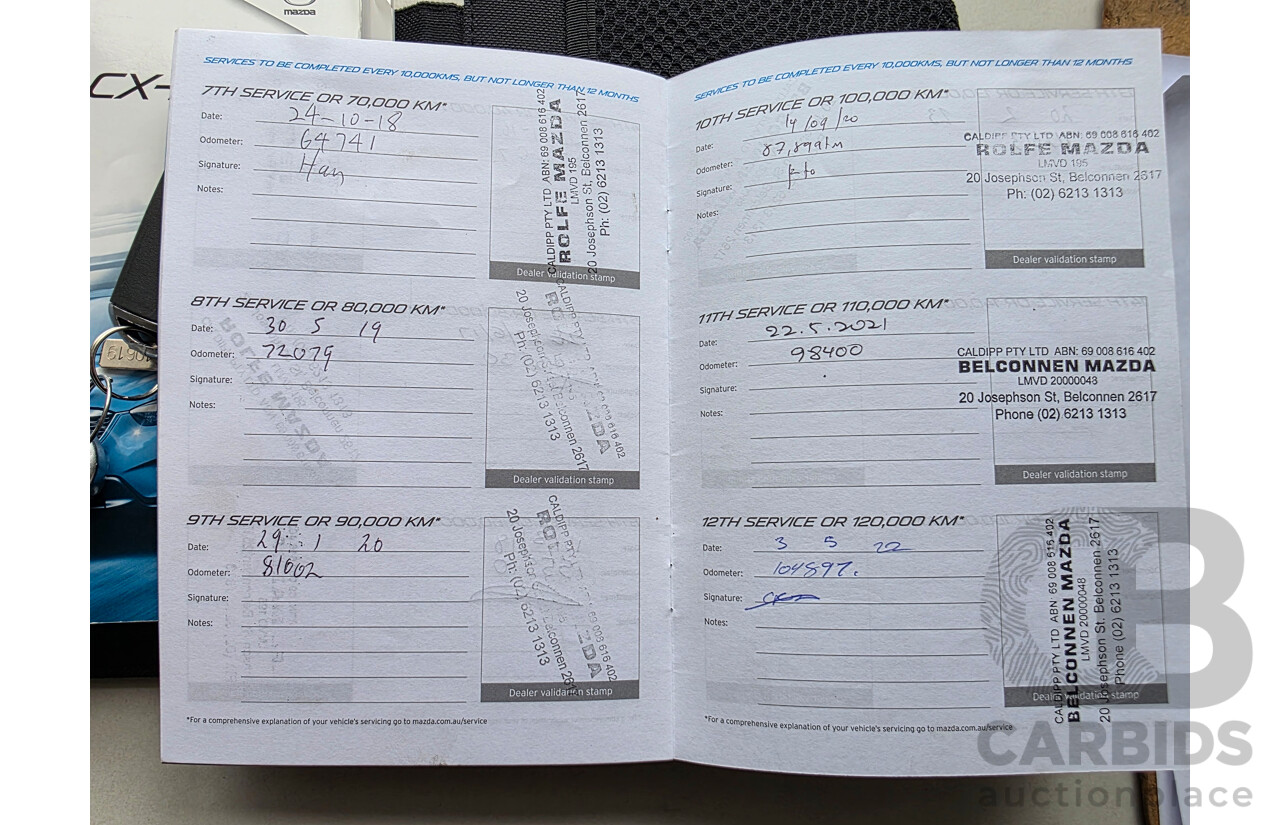 mazda
CX-
SERVICES TO BE COMPLETED EVERY 10,000KMS, BUT NOT LONGER THAN 12 MONTHS
7TH SERVICE OR 70,000 KM*
Date: 24-10-18
Odometer: 64741
Signature:
Notes:
CALDIPP PTY LTD ABN: 69 008 616 402
ROLFE MAZDA
LMVD 195
20 Josephson St, Belconnen 2617
Ph: (02) 6213 1313
Dealer validation stamp
8TH SERVICE OR 80,000 KM*
Date: 30 5 19
Odometer: 72079
Signature:
Notes:
20 Josephson St, Belconnen 2617
Ph: (02) 6213 1313
Dealer validation stamp
9TH SERVICE OR 90,000 KM*
Date: 29 1 20
Odometer: 81002
Signature:
Notes:
Ph: (02) 6213 1313
Dealer validation stamp
*For a comprehensive explanation of your vehicle's servicing go to mazda.com.au/service
SERVICES TO BE COMPLETED EVERY 10,000KMS, BUT NOT LONGER THAN 12 MONTHS
10TH SERVICE OR 100,000 KM*
Date: 14/09/20
Odometer: 87,899km
Signature:
Notes:
CALDIPP PTY LTD ABN: 69 008 616 402
ROLFE MAZDA
LMVD 195
20 Josephson St, Belconnen 2617
Ph: (02) 6213 1313
Dealer validation stamp
11TH SERVICE OR 110,000 KM*
Date: 22.5.2021
Odometer: 98400
Signature:
Notes:
CALDIPP PTY LTD ABN: 69 008 616 402
BELCONNEN MAZDA
LMVD 20000048
20 Josephson St, Belconnen 2617
Phone (02) 6213 1313
Dealer validation stamp
12TH SERVICE OR 120,000 KM*
Date: 3 5 22
Odometer: 104897.
Signature:
Notes:
CALDIPP PTY LTD ABN: 69 008 616 402
BELCONNEN MAZDA
LMVD 20000048
20 Josephson St, Belconnen 2617
Phone (02) 6213 1313
Dealer validation stamp
*For a comprehensive explanation of your vehicle's servicing go to mazda.com.au/service
CARBIDS
auctionplace